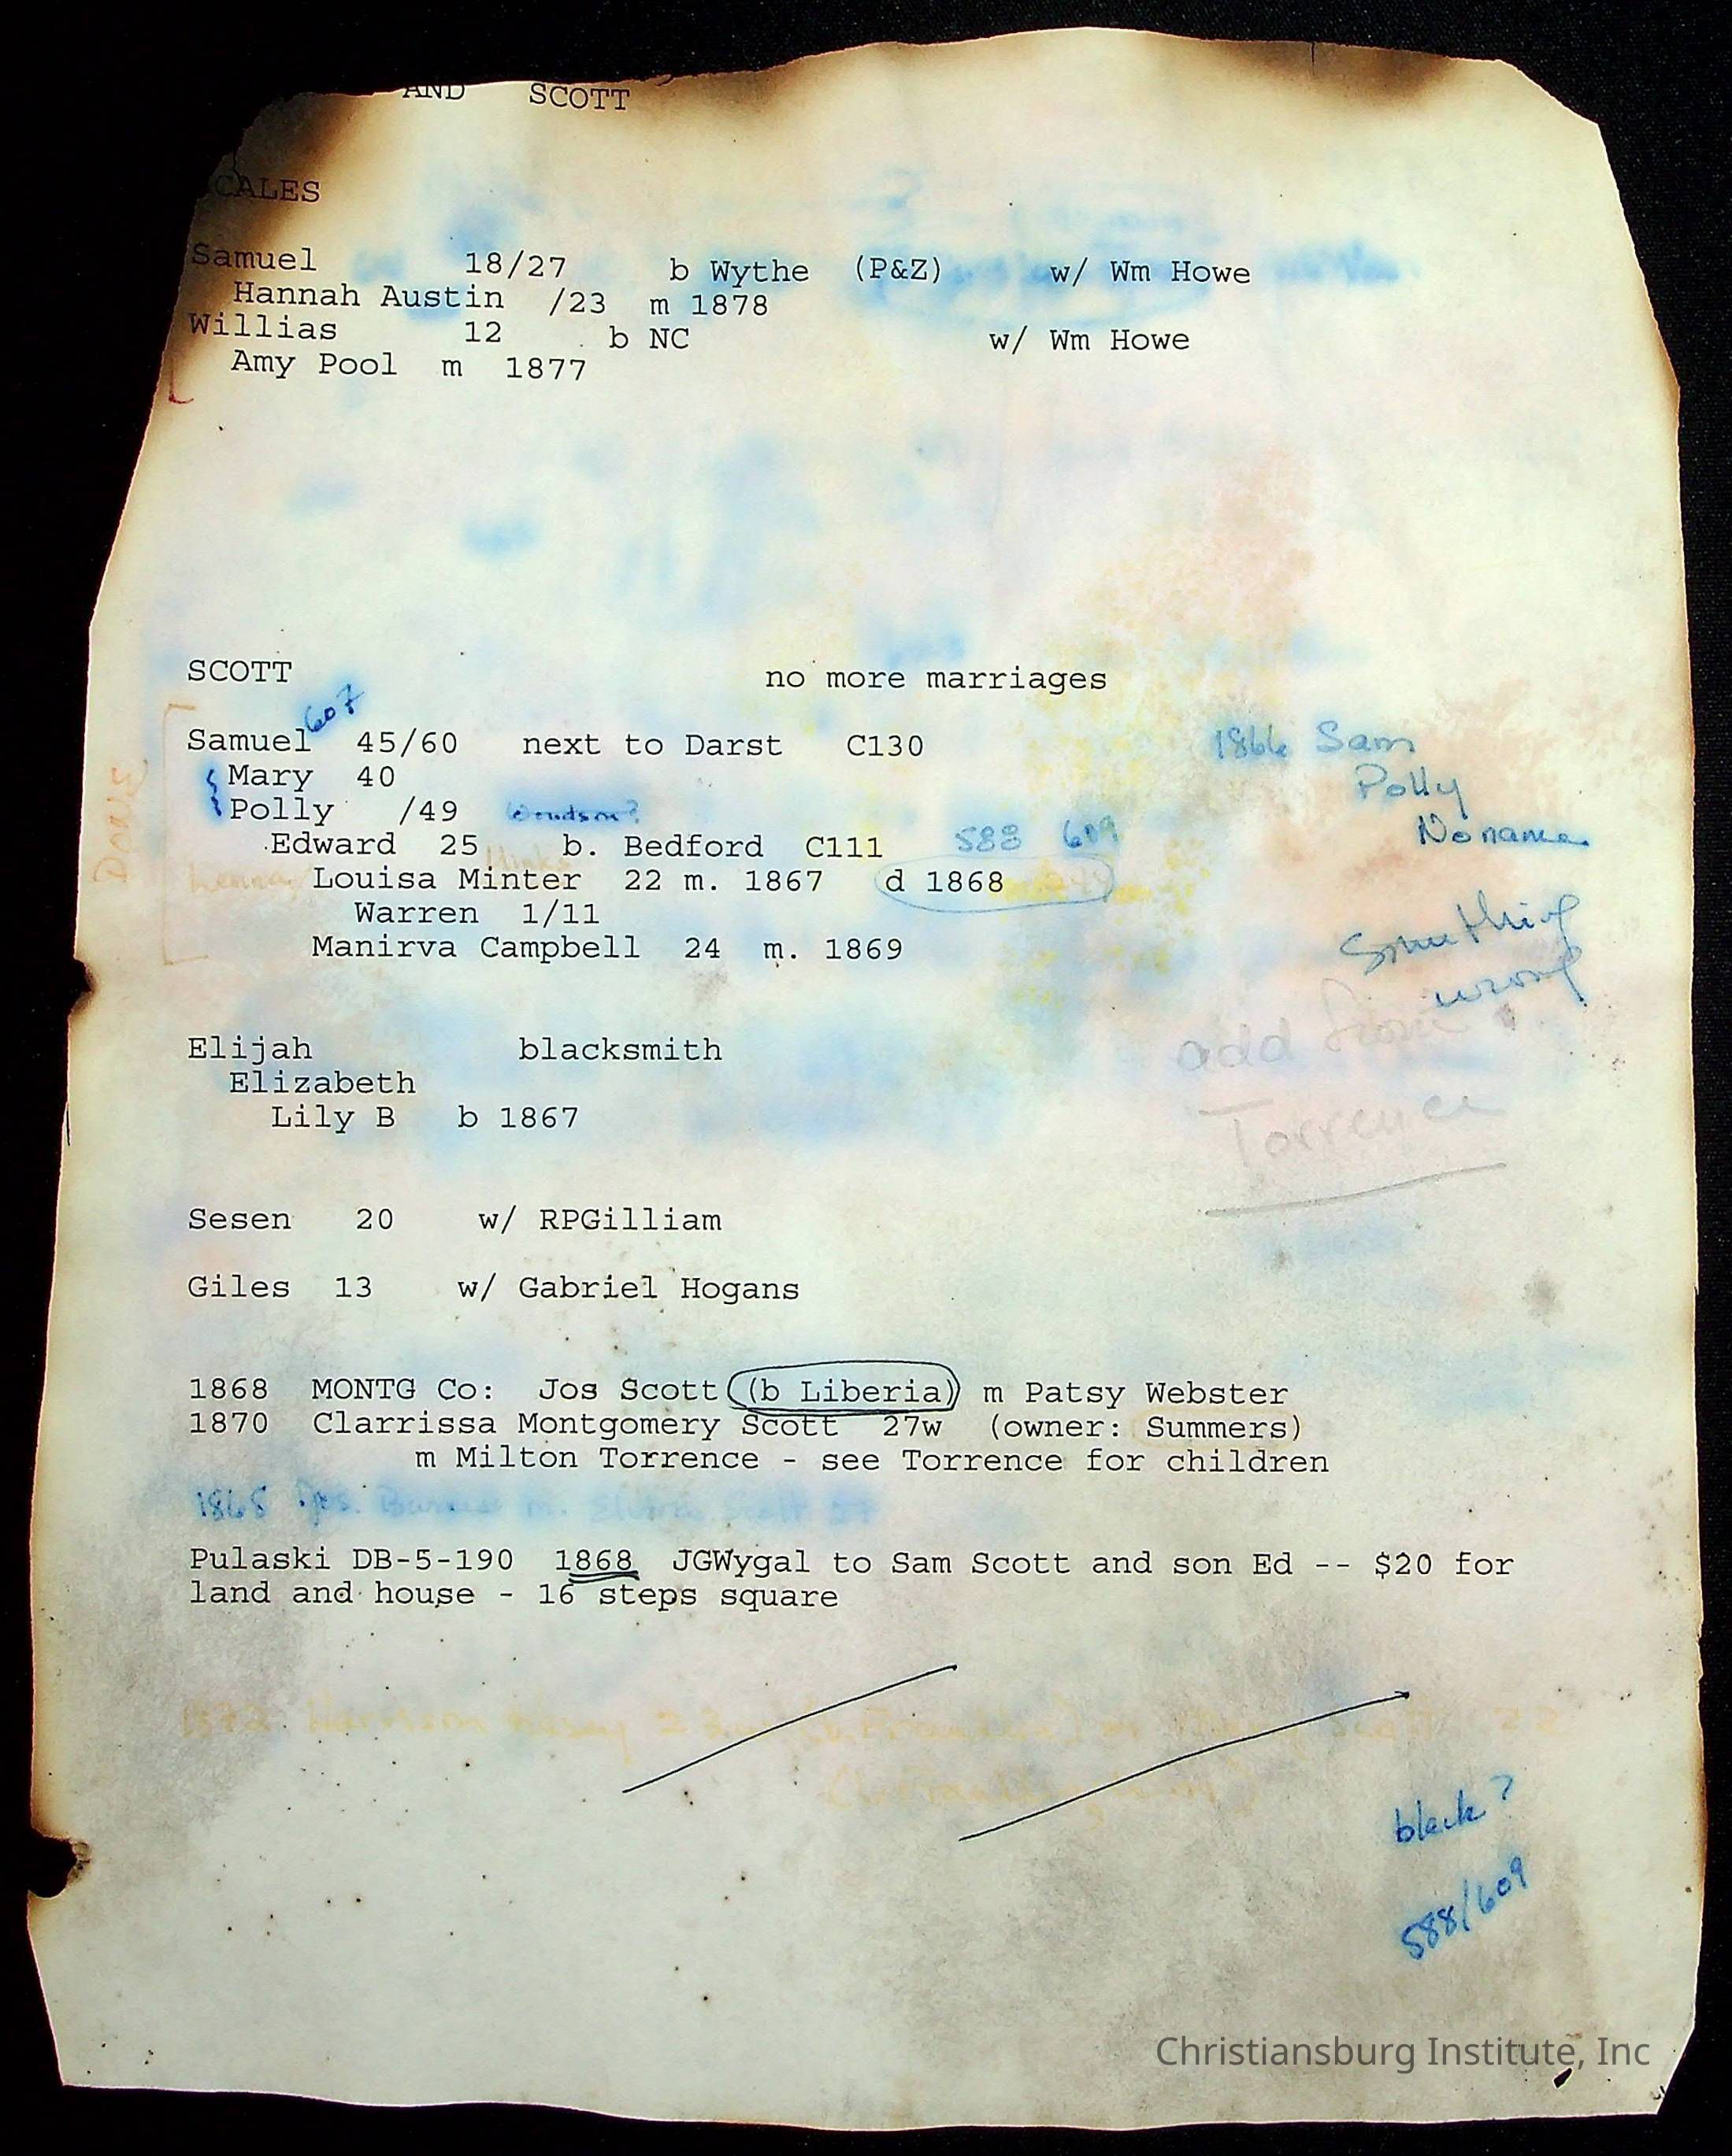 AND SCOTT
SCALES
Samuel 18/27 b Wythe (P&Z) w/ Wm Howe
Hannah Austin /23 m 1878
Willias 12 b NC w/ Wm Howe
Amy Pool m 1877
SCOTT no more marriages
607
Samuel 45/60 next to Darst C130 1866 Sam
Mary 40 Polly
Polly /49 No name
Edward 25 b. Bedford C111 588 609
Louisa Minter 22 m. 1867 d 1868
Warren 1/11
Manirva Campbell 24 m. 1869
DONE
Something
wrong
add from
Torrence
Elijah blacksmith
Elizabeth
Lily B b 1867
Sesen 20 w/ RPGilliam
Giles 13 w/ Gabriel Hogans
1868 MONTG Co: Jos Scott (b Liberia) m Patsy Webster
1870 Clarrissa Montgomery Scott 27w (owner: Summers)
m Milton Torrence - see Torrence for children
1868 m. Scott
Pulaski DB-5-190 1868 JGWygal to Sam Scott and son Ed -- $20 for
land and house - 16 steps square
Harrison Scott 22
black?
588/609
Christiansburg Institute, Inc